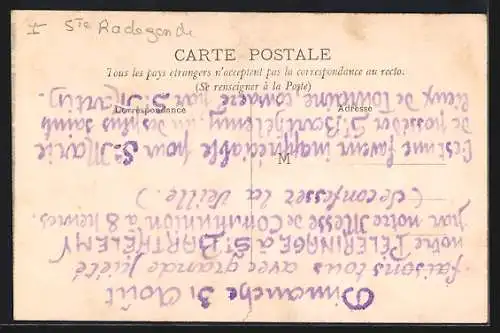 I Ste Radegonde
CARTE POSTALE
Tous les pays étrangers n'acceptent pas la correspondance au recto.
(Se renseigner à la Poste)
Correspondance
Adresse
M
Dimanche 31 Août
faisons tous avec grande piété
notre PÈLERINAGE à St BARTHÉLEMY
par notre Messe de Communion à 8 heures.
(Se confesser la Veille.)
C'est une faveur inappréciable pour Ste Marie
de posséder St Barthélemy, un des plus saints
lieux de Touraine, consacré par St Martin.